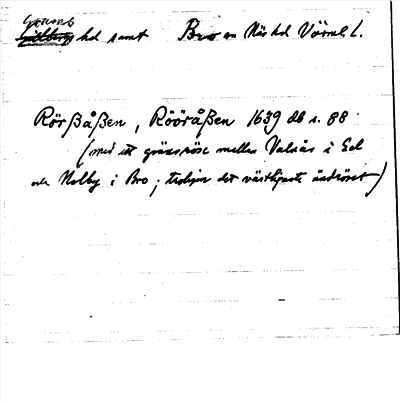 Grums
Gillberg hd samt Bro sn Näs hd Värml l.
Rörßåßen, Rööråßen 1639 db s. 88
(med ett gränsröse mellan Valsås i Ed
och Nolby i Bro; troligen det västligaste ändröset)